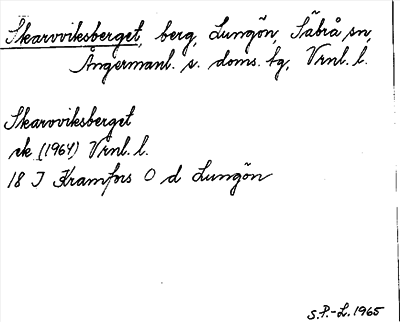 Skarvviksberget, berg, Lungön, Säbrå sn,
Ångermanl. s. doms. tg, Vrnl. l.
Skarvviksberget
ek (1964) Vrnl. l.
18 J Kramfors O d Lungön
S.P.-L. 1965